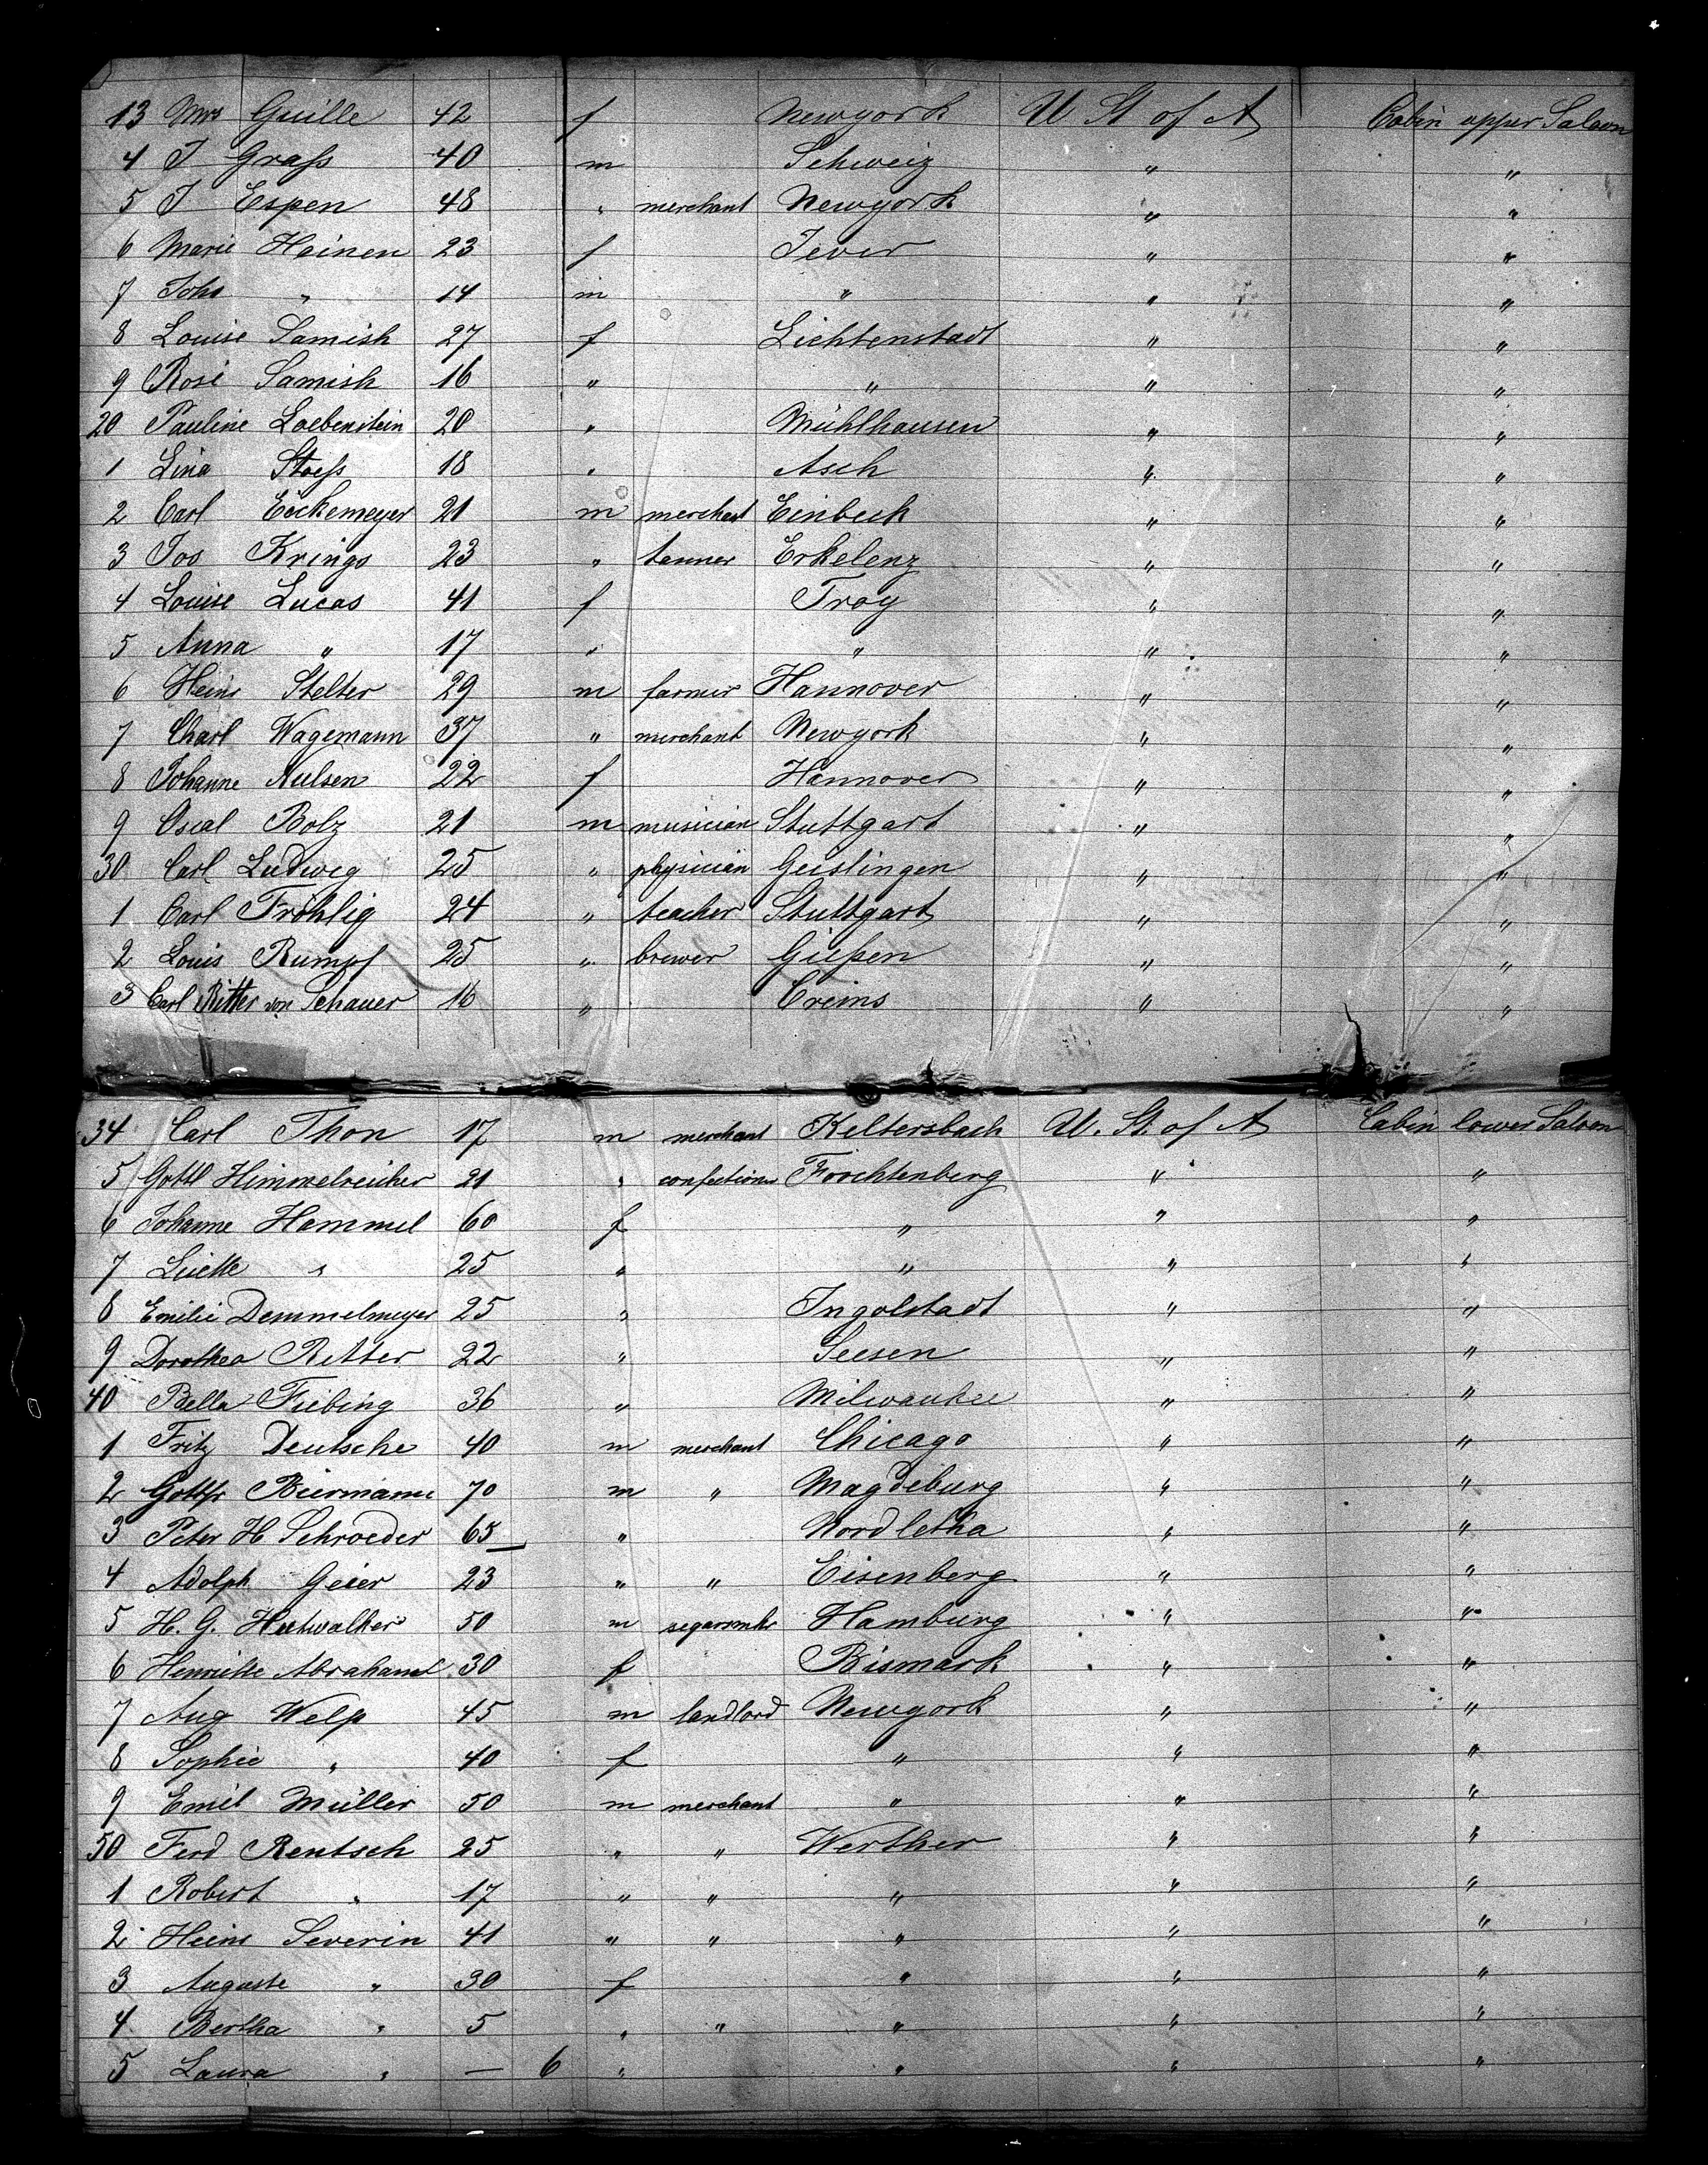 13 Mrs Guille 42 f Newyork U St of A Cabin upper Saloon
4 J Graſs 40 m Schweiz " "
5 J Espen 48 " merchant Newyork " "
6 Marie Heinen 23 f Jever " "
7 Johs " 14 m " " "
8 Louise Samish 27 f Lichtenstadt " "
9 Rosi Samish 16 " " " "
20 Pauline Loebenstein 20 " Mühlhausen " "
1 Lina Stoeſs 18 " Asch " "
2 Carl Eickemeyer 21 m merchant Einbeck " "
3 Jos Krings 23 " tanner Erkelenz " "
4 Louise Lucas 41 f Troy " "
5 Anna " 17 " " " "
6 Heinr Stelter 29 m farmer Hannover " "
7 Charl Wagemann 37 " merchant Newyork " "
8 Johanne Nulsen 22 f Hannover " "
9 Oscal Bolz 21 m musician Stuttgart " "
30 Carl Ludwig 25 " physician Geislingen " "
1 Carl Fröhlig 24 " teacher Stuttgart " "
2 Louis Rumpf 25 " brewer Gieſsen " "
3 Carl Ritter von Schauer 16 " Crems " "
34 Carl Thon 17 m merchant Keltersbach U. St. of A Cabin lower Saloon
5 Gottl Himmelreicher 21 " confectioner Forchtenberg " "
6 Johanne Hammel 60 f " " "
7 " 25 " " " "
8 Emilie Demmelmeyer 25 " Ingolstadt " "
9 Dorothea Ritter 22 " Seesen " "
40 Bella Fiebing 36 " Milwaukee " "
1 Fritz Deutsche 40 m merchant Chicago " "
2 Gottfr Biermann 70 m " Magdeburg " "
3 Peter H Schroeder 65 " Nordletha " "
4 Adolph Geier 23 " " Eisenberg " "
5 H. G. Hutwalker 50 m segarmkr Hamburg " "
6 Henriette Abraham 30 f Bismark " "
7 Aug Welp 45 m landlord Newyork " "
8 Sophie " 40 f " " "
9 Emil Müller 50 m merchant " " "
50 Ferd Rentsch 25 " " Werther " "
1 Robert " 17 " " " " "
2 Heinr Severin 41 " " " " "
3 Auguste " 30 f " " "
4 Bertha " 5 " " " " "
5 Laura " — 6 " " " "